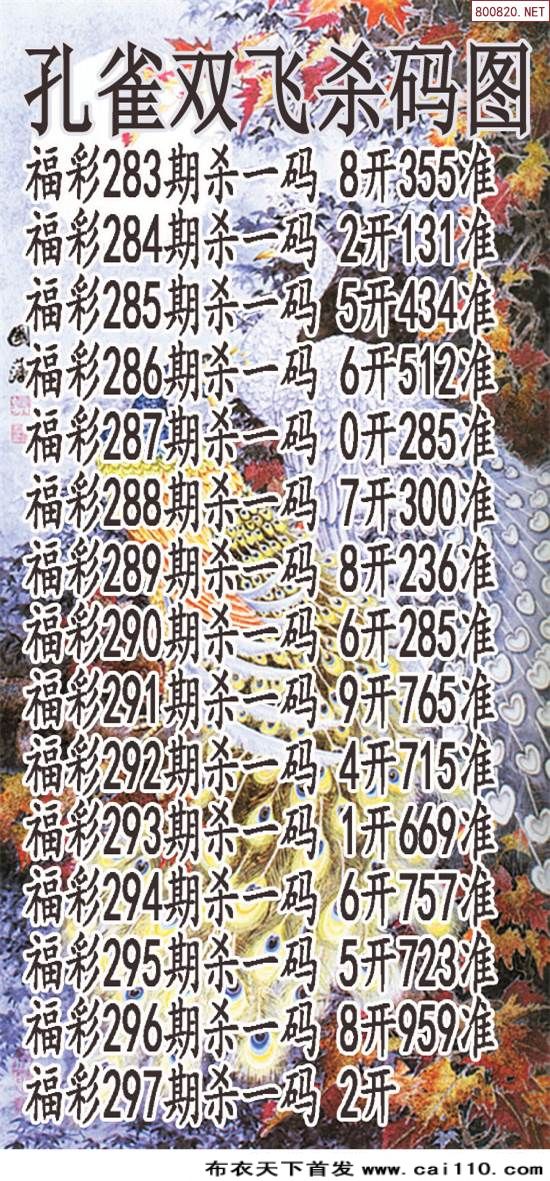 800820.NET
孔雀双飞杀码图
福彩283期杀一码 8开355准
福彩284期杀一码 2开131准
福彩285期杀一码 5开434准
福彩286期杀一码 6开512准
福彩287期杀一码 0开285准
福彩288期杀一码 7开300准
福彩289期杀一码 8开236准
福彩290期杀一码 6开285准
福彩291期杀一码 9开765准
福彩292期杀一码 4开715准
福彩293期杀一码 1开669准
福彩294期杀一码 6开757准
福彩295期杀一码 5开723准
福彩296期杀一码 8开959准
福彩297期杀一码 2开
布衣天下首发 www.cai110.com